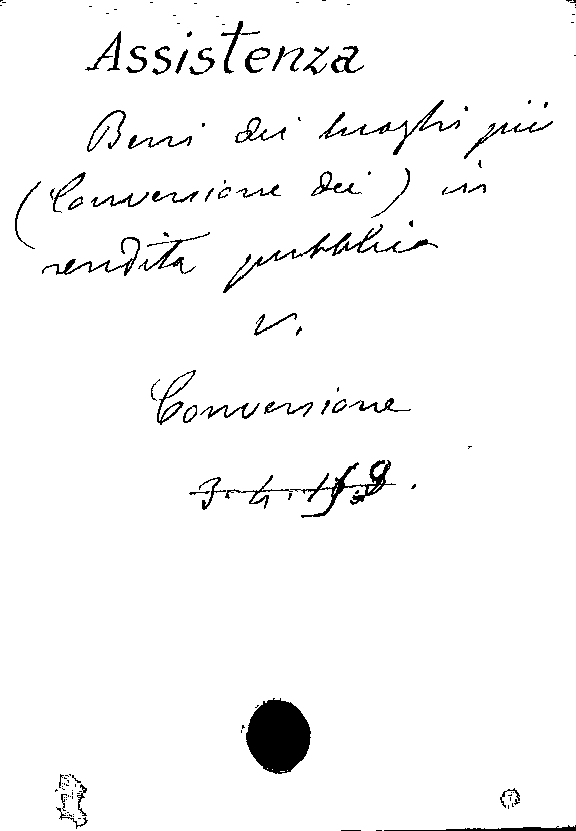 Assistenza
Beni dei luoghi pii
(Conversione dei) in
rendita pubblica
V.
Conversione